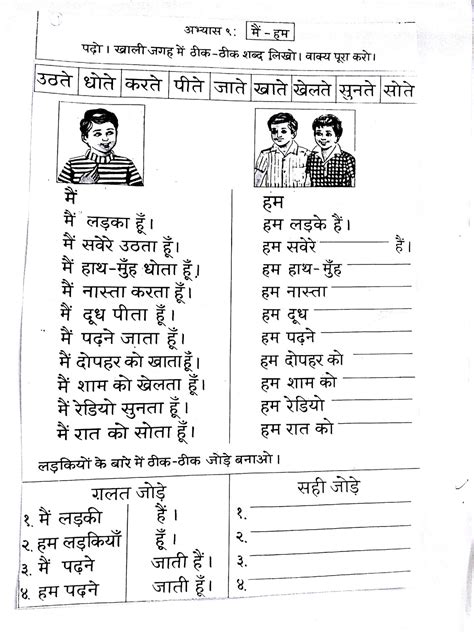 अभ्यास ९: मैं - हम
पढ़ो। खाली जगह में ठीक-ठीक शब्द लिखो। वाक्य पूरा करो।
उठते धोते करते पीते जाते खाते खेलते सुनते सोते
मैं हम
मैं लड़का हूँ। हम लड़के हैं।
मैं सवेरे उठता हूँ। हम सवेरे हैं।
मैं हाथ-मुँह धोता हूँ। हम हाथ-मुँह
मैं नास्ता करता हूँ। हम नास्ता
मैं दूध पीता हूँ। हम दूध
मैं पढ़ने जाता हूँ। हम पढ़ने
मैं दोपहर को खाता हूँ। हम दोपहर को
मैं शाम को खेलता हूँ। हम शाम को
मैं रेडियो सुनता हूँ। हम रेडियो
मैं रात को सोता हूँ। हम रात को
लड़कियों के बारे में ठीक-ठीक जोड़े बनाओ।
गलत जोड़े सही जोड़े
१. मैं लड़की हैं। १.
२. हम लड़कियाँ हूँ। २.
३. मैं पढ़ने जाती हैं। ३.
४. हम पढ़ने जाती हूँ। ४.